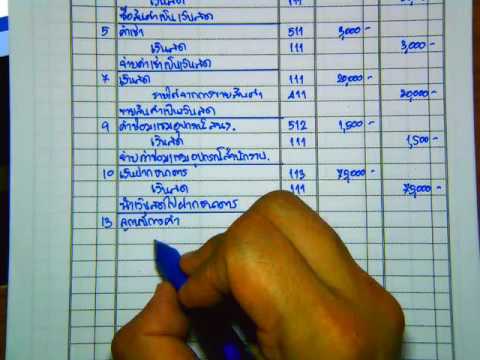 เงินสด 111
ซื้อสินค้าเป็นเงินสด
5 ค่าเช่า 511 3,000 -
เงินสด 111 3,000 -
จ่ายค่าเช่าเป็นเงินสด
7 เงินสด 111 20,000 -
รายได้จากการขายสินค้า 411 20,000 -
ขายสินค้าเป็นเงินสด
9 ค่าซ่อมแซมอุปกรณ์ สนง. 512 1,500 -
เงินสด 111 1,500 -
จ่ายค่าซ่อมแซมอุปกรณ์สำนักงาน.
10 เงินฝากธนาคาร 113 75,000 -
เงินสด 111 75,000 -
นำเงินสดไปฝากธนาคาร
13 ลูกหนี้การค้า